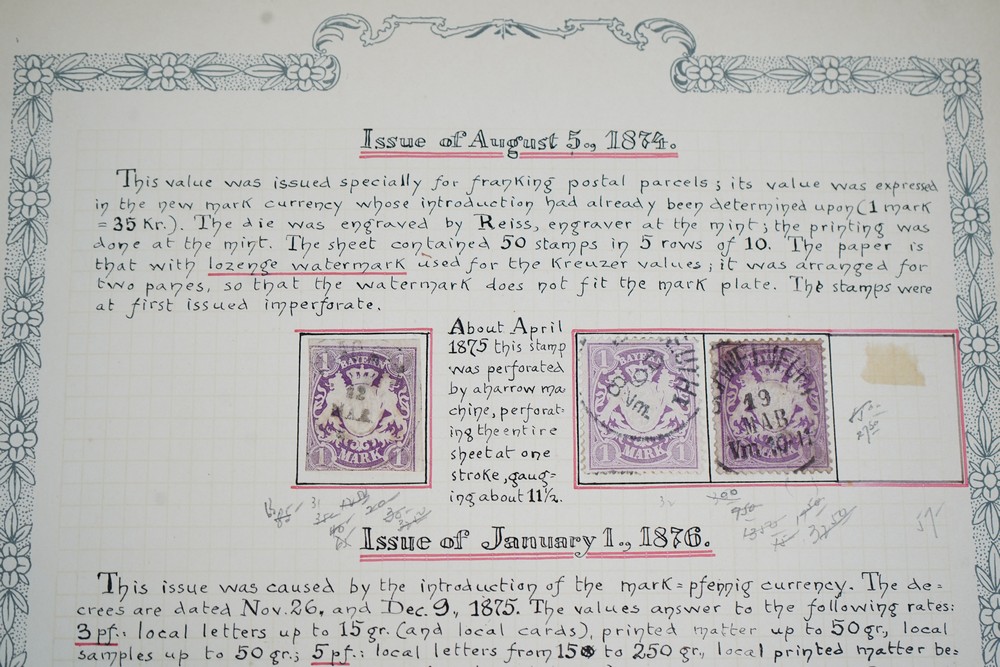 Issue of August 5., 1874.
This value was issued specially for franking postal parcels; its value was expressed
in the new mark currency whose introduction had already been determined upon (1 mark
= 35 Kr.). The die was engraved by Reiss, engraver at the mint; the printing was
done at the mint. The sheet contained 50 stamps in 5 rows of 10. The paper is
that with lozenge watermark used for the Kreuzer values; it was arranged for
two panes, so that the watermark does not fit the mark plate. The stamps were
at first issued imperforate.
About April
1875 this stamp
was perforated
by a harrow ma
chine, perforat=
ing the entire
sheet at one
stroke, gaug=
ing about 11½.
1 BAYERN 1
12
MAR
1 MARK 1
1 BAYERN 1
Vm.
1 MARK 1
BAYERN
19
MAR
MARK
Issue of January 1., 1876.
This issue was caused by the introduction of the mark=pfennig currency. The de=
crees are dated Nov. 26, and Dec. 9., 1875. The values answer to the following rates:
3 pf.: local letters up to 15 gr. (and local cards), printed matter up to 50 gr., local
samples up to 50 gr.; 5 pf.: local letters from 15 to 250 gr., local printed matter be=